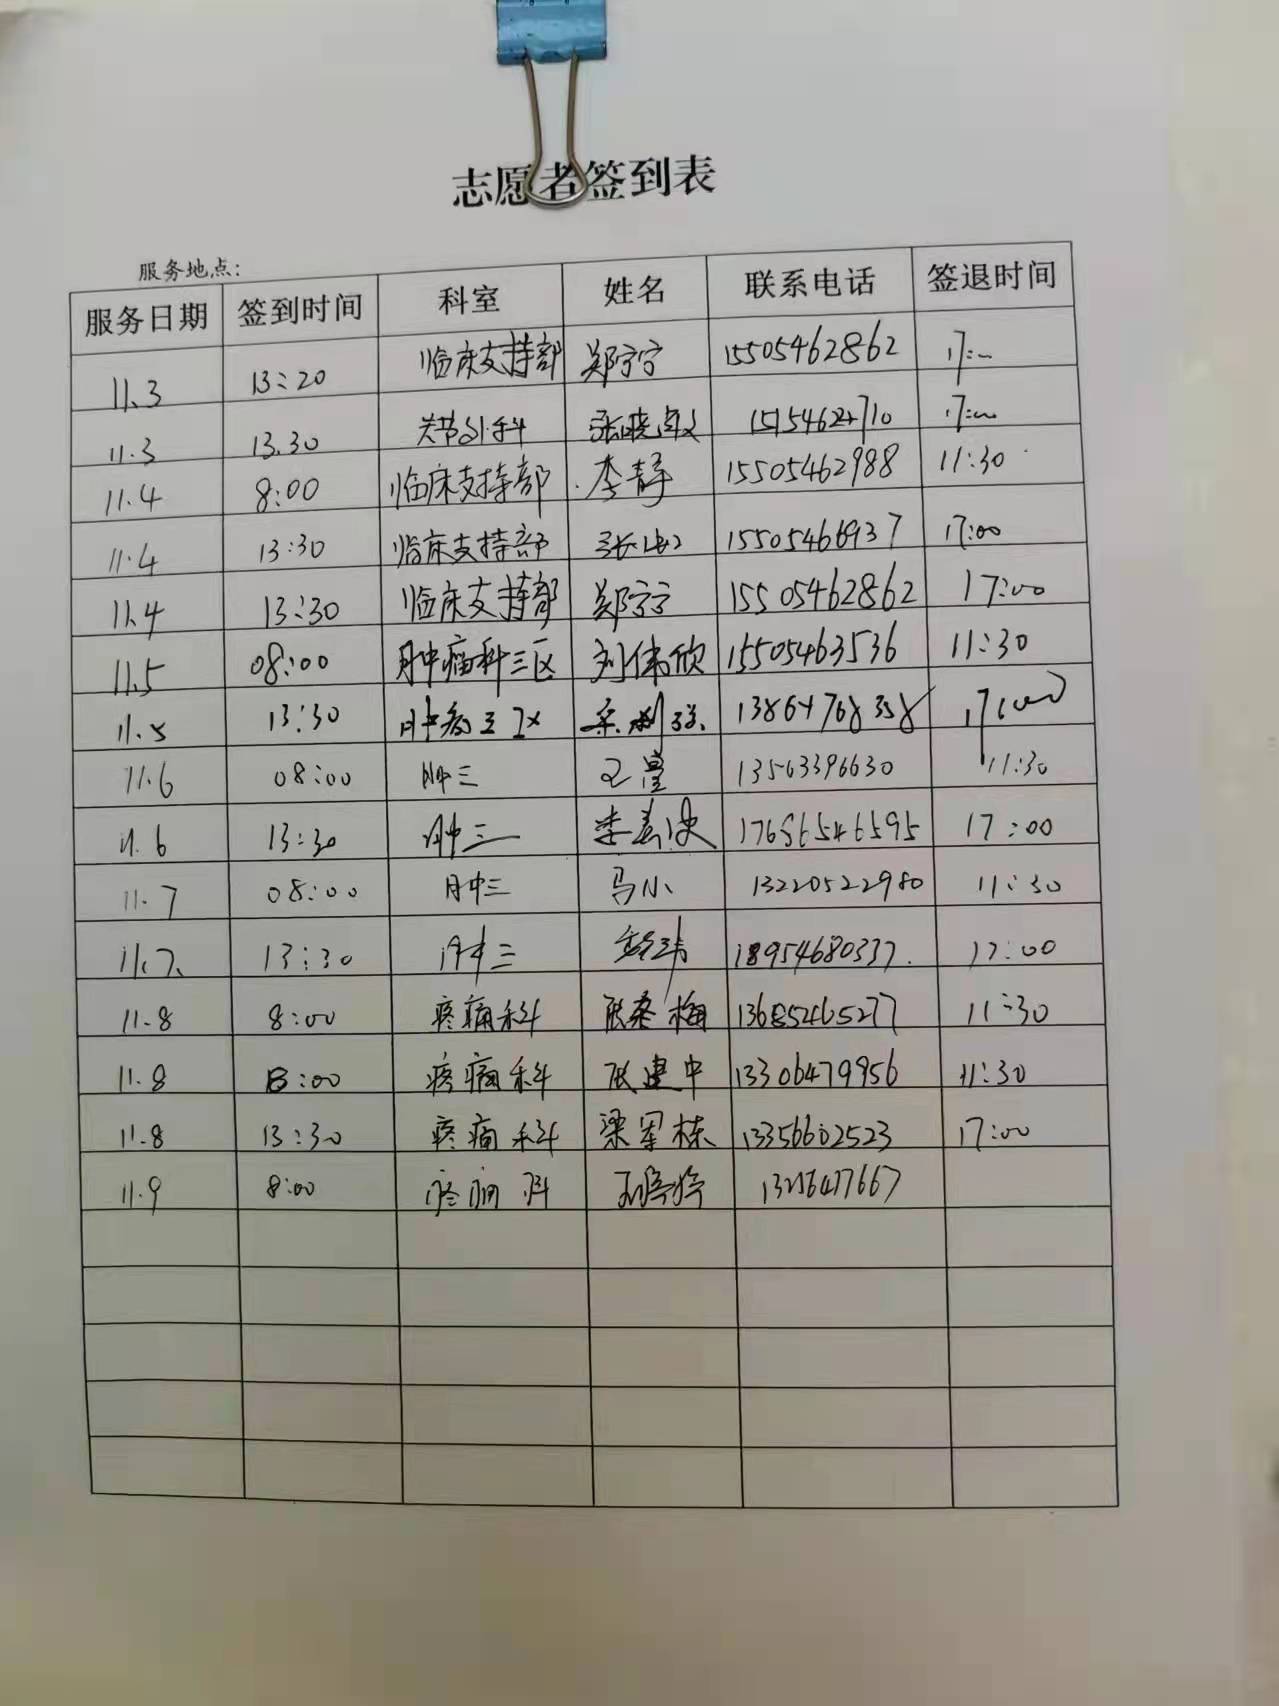 志愿者签到表
服务地点:
服务日期 签到时间 科室 姓名 联系电话 签退时间
11.3 13:20 临床支持部 郑宁宁 15505462862 17:00
11.3 13.30 关节外科 张晓敏 17:00
11.4 8:00 临床支持部 李静 15505462988 11:30
11.4 13:30 临床支持部 15505466937 17:00
11.4 13:30 临床支持部 郑宁宁 15505462862 17:00
11.5 08:00 肿瘤科三区 刘伟欣 15505463536 11:30
11.5 13:30 肿瘤三区 17:00
11.6 08:00 肿三 13563396630 11:30
11.6 13:30 肿三 17:00
11.7 08:00 肿三 马小 13220522980 11:30
11.7. 13:30 肿三 18954680337. 17:00
11.8 8:00 疼痛科 13685465277 11:30
11.8 8:00 疼痛科 张建中 13306479956 11:30
11.8 13:30 疼痛科 梁军栋 13356602523 17:00
11.9 8:00 疼痛科